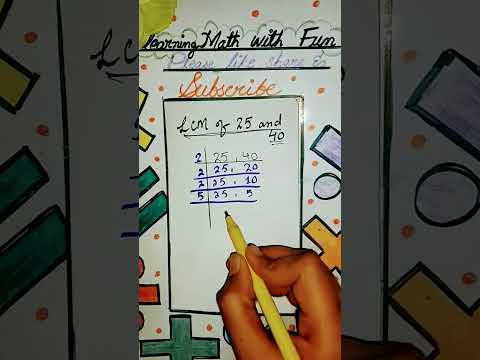 Learning Math with Fun
Please like share &
Subscribe
LCM of 25 and
40
2 | 25, 40
2 | 25, 20
2 | 25, 10
5 | 25, 5